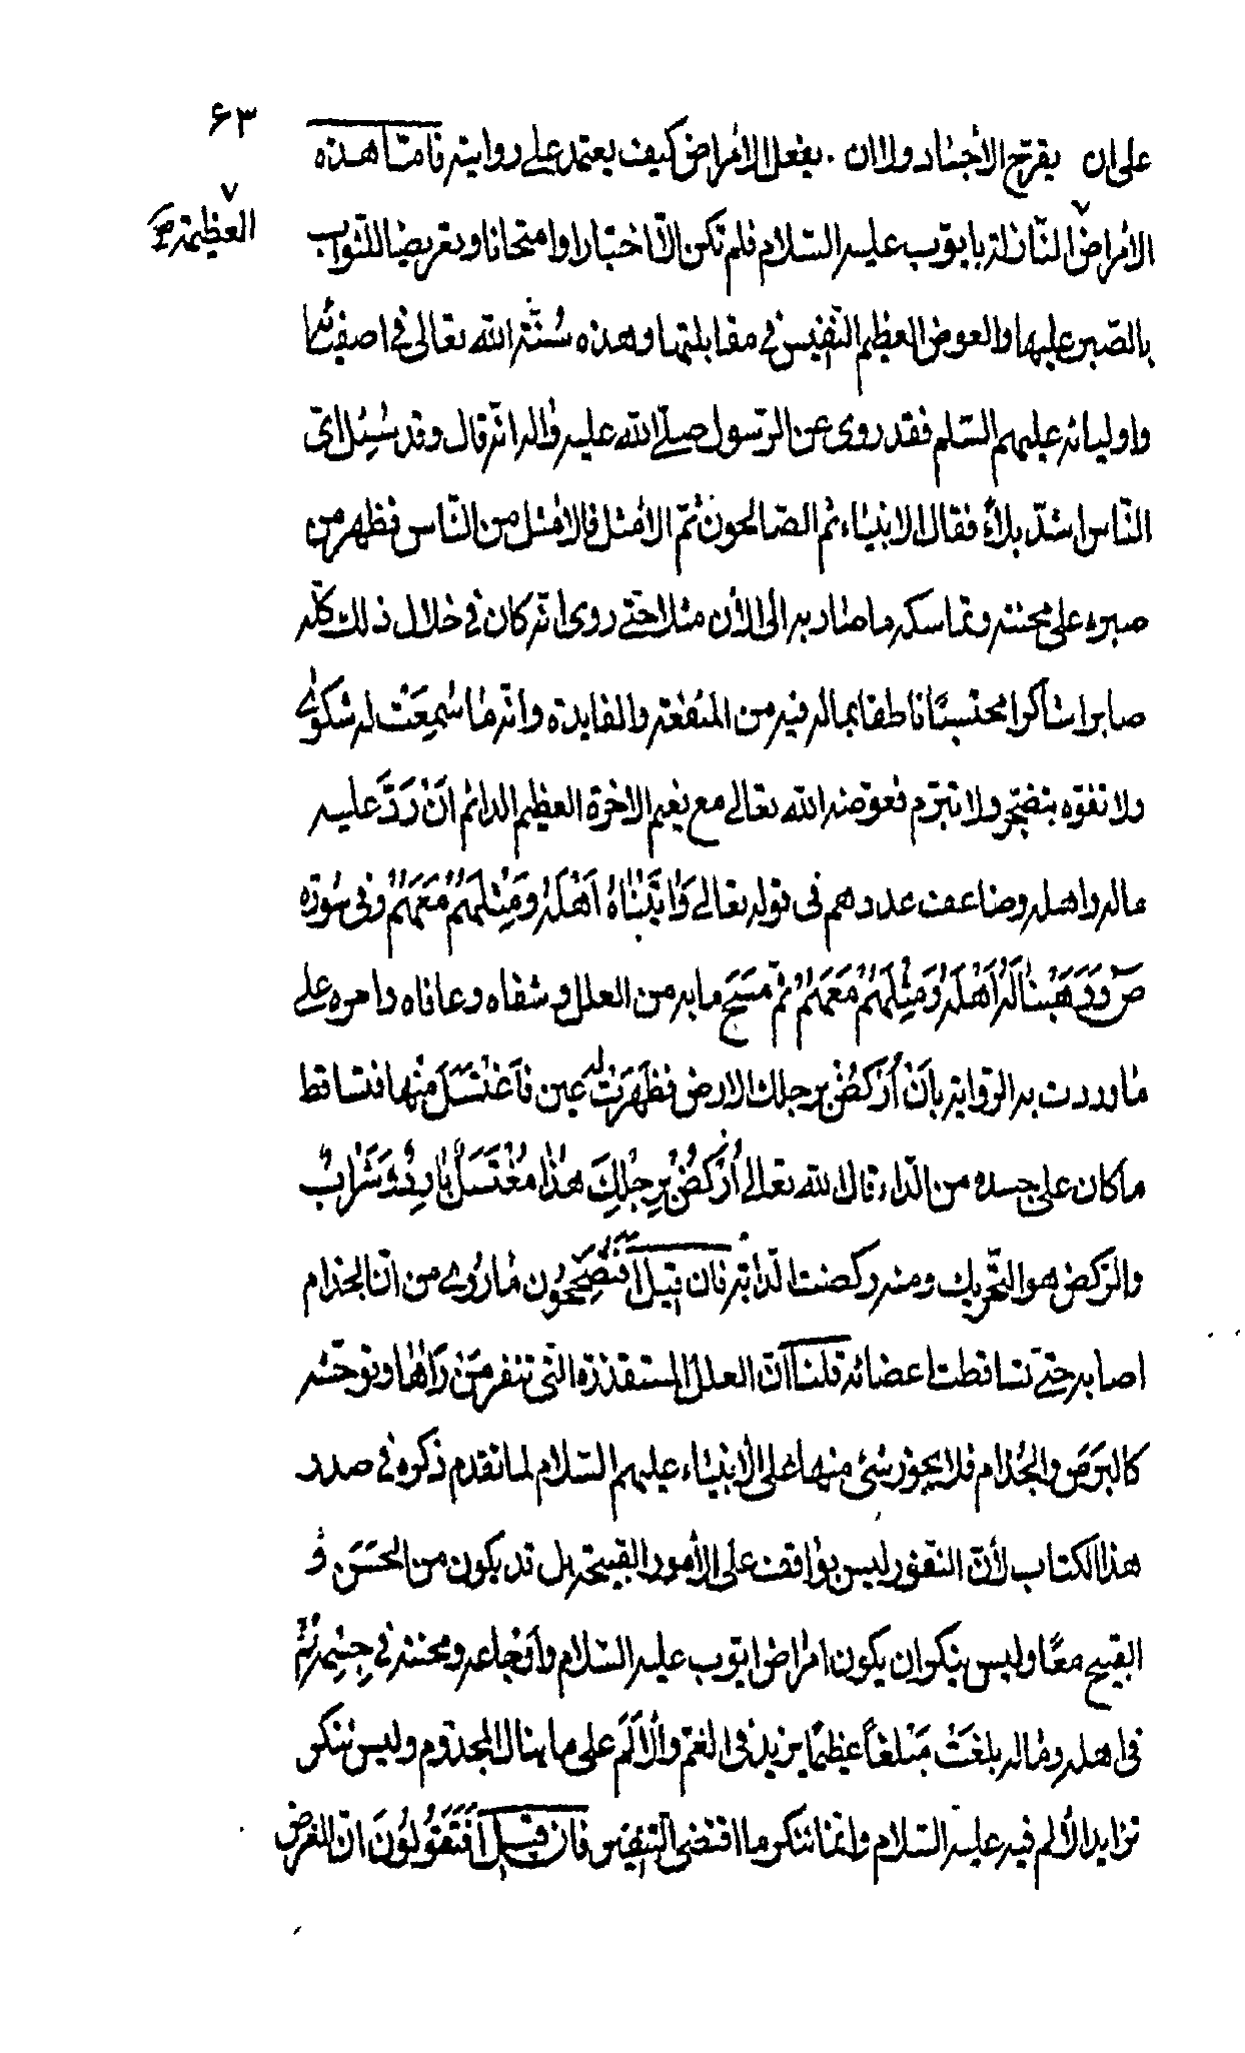 ٦٣
على ان يقرح الأجساد ولا ان يفعل الامراض كيف يعتمد على روايته فامّا هذه
الامراض النّازلة بايوّب عليه السّلام فلم تكن الّا اختبارا وامتحانا وتعريضا للثّواب
العظيمة صح
بالصّبر عليها والعوض العظيم النّفيس في مقابلتها وهذه سُنّة الله تعالى في اصفيائه
واوليائه عليهم السّلم فقد روى عن الرّسول صلّى الله عليه واله انّه قال وقد سُئِل اىّ
النّاس اشدّ بلاءً فقال الانبياء ثم الصّالحون ثمّ الامثل فالامثل من النّاس فظهر من
صبره على محنته وتماسكه ما صار به الى الأن مثلا حتّى روى انّه كان في خلال ذلك كلّه
صابرا شاكرا محتسبًا ناطقا بما له فيه من المنفعة والفايدة وانّه ما سُمِعَتْ له شكوىٰ
ولا تفوّه بتضجّر ولا تبرّم فعوّضه الله تعالى مع نعيم الاخرة العظيم الدائم اَنْ رَدَّ عليه
ماله واهله وضاعف عددهم في قوله تعالى وَاٰتَيْنٰاهُ اَهْلَهُ وَمِثْلَهُمْ مَعَهُمْ وفي سُورة
صۤ وَوَهَبْنٰا لَهُ اَهْلَهُ وَمِثْلَهُمْ مَعَهُمْ ثمّ مَسَحَ ما به من العلل وشفاه وعافاه وامره على
ما وردت به الرّواية بِاَنْ اُرْكُضْ برجلك الارض فظَهَرَتْ له عين فَاغْتَسَلَ مِنْها فتساقط
ما كان على جسده من الدّاء قال الله تعالى اُرْكُضْ بِرِجْلِكَ هٰذا مُغْتَسَلٌ بٰارِدٌ وَشَرٰابٌ
والرّكض هو التّحريك ومنه ركضت الدّابّة فان قيل اَفَتُصَحِّحُون ما رُوى من انّ الجذام
اصابه حتّى تساقطت اعضائه قلنا اَنّ العلل المستقذرة الّتى تنفر مَنْ رَاٰها وتوحّشه
كالبَرَصِ والجُذام فلا يجوز شئ منها على الانبياء عليهم السّلام لما تقدم ذكره في صدر
هذا الكتاب لأنّ النّفور ليس بواقف على الأمور القبيحة بل قد يكون من الحَسَنِ وَ
القبيح معًا وليس ينكر ان يكون امراض ايّوب عليه السّلام واوجاعه ومحنته في جِسْمِه ثُمَّ
في اهله وماله بلغَتْ مَبْلغاً عظيمًا يزيد في الغمّ والاَلَمَ على ما ينال المجذوم وليس ننكر
تزايد الألم فيه عليه السّلام وانّما ننكر ما اقتضى التّنفير فان قيل اَفَتَقُولُونَ انّ الغرض